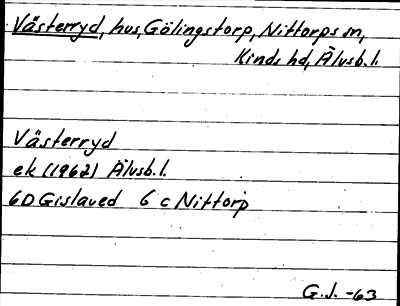 Västerryd, hus, Gölingstorp, Nittorps sn,
Kinds hd, Älvsb.l.
Västerryd
ek (1962) Älvsb.l.
6D Gislaved 6 c Nittorp
G.J. -63